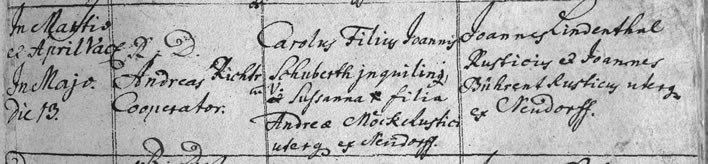 In Martio
et April Vac.
In Majo.
Die 13.
R. D.
Andreas Richtr
Cooperator.
Carolus Filius Joannis
Schuberth inquilini,
et Sussanna filia
Andreæ Möck Rustici
uterq ex Neudorff.
Joannes Lindenthal
Rusticus et Joannes
Bührent Rusticus uterq
ex Neudorff.